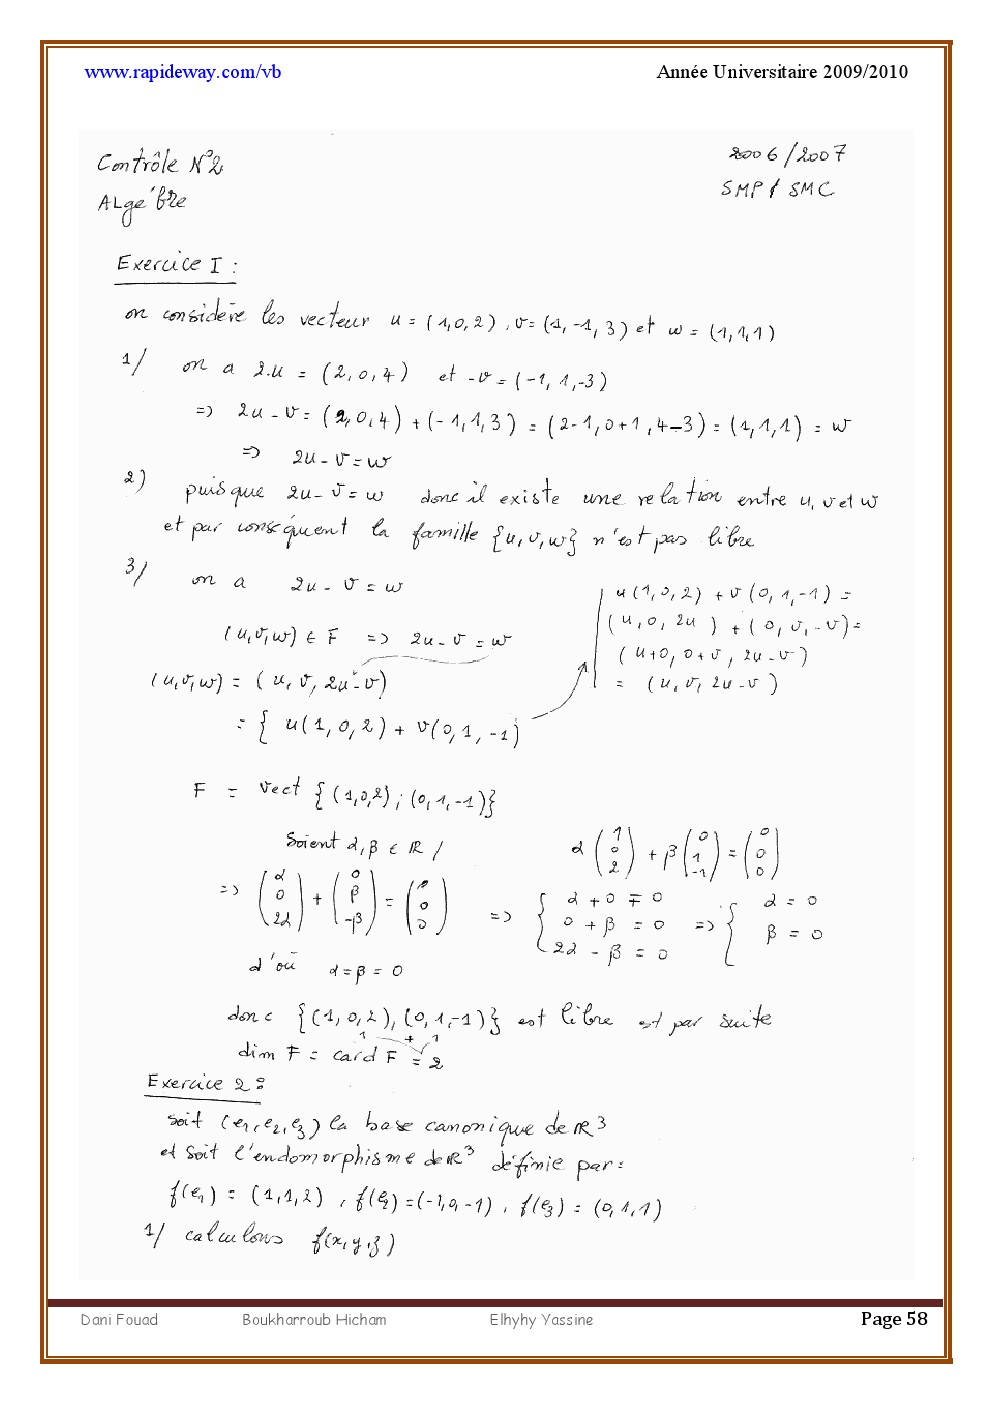 www.rapideway.com/vb Année Universitaire 2009/2010
Contrôle N°2 2006/2007
ALgébre SMP/SMC
Exercice I :
on considère les vecteur u = (1,0,2), v = (1,-1,3) et w = (1,1,1)
1/ on a 2.u = (2,0,4) et -v = (-1,1,-3)
=> 2u - v = (2,0,4) + (-1,1,3) = (2-1,0+1,4-3) = (1,1,1) = w
=> 2u - v = w
2) puisque 2u - v = w donc il existe une relation entre u, v et w
et par conséquent la famille {u,v,w} n'est pas libre
3/ on a 2u - v = w
(u,v,w) ∈ F => 2u - v = w
(u,v,w) = (u,v,2u-v)
= { u(1,0,2) + v(0,1,-1)
u(1,0,2) + v(0,1,-1) =
(u,0,2u) + (0,v,-v) =
(u+0,0+v,2u-v)
= (u,v,2u-v)
F = Vect {(1,0,2);(0,1,-1)}
Soient α,β ∈ ℝ / α (1 0 2) + β (0 1 -1) = (0 0 0)
=> (α 0 2α) + (0 β -β) = (0 0 0) => { α + 0 = 0
0 + β = 0
2α - β = 0 => { α = 0
β = 0
d'où α = β = 0
donc {(1,0,2),(0,1,-1)} est libre est par suite
1 + 1
dim F = card F = 2
Exercice 2 :
soit (e1,e2,e3) la base canonique de ℝ³
et soit l'endomorphisme de ℝ³ définie par :
f(e1) = (1,1,2), f(e2) = (-1,0,-1), f(e3) = (0,1,1)
1/ calculons f(x,y,z)
Dani Fouad Boukharroub Hicham Elhyhy Yassine Page 58